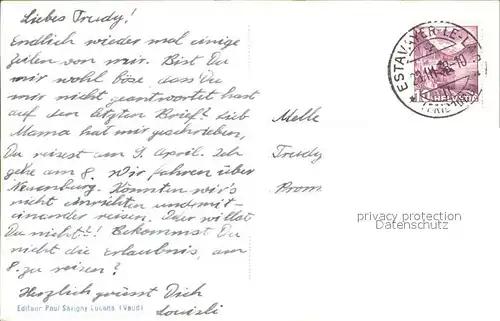 Liebes Trudy!
Endlich wieder mal einige
Zeilen von mir. Bist Du
mir wohl böse, dass Du
mir nicht geantwortet hast
auf den letzten Brief? Lieb
Mama hat mir geschrieben,
Du reisest am 9. April. Ich
gehe am 8. Wir fahren über
Neuenburg. Könnten wir's
nicht einrichten und mit-
einander reisen. Oder willst
Du nicht?! Bekommst Du
nicht die Erlaubnis, am
8. zu reisen?
Herzlich grüsst Dich
Louisli
Editeur Paul Savigny Lucens (Vaud)
ESTAVAYER-LE-
HELVETIA
Melle
Trudy
Prom
privacy protection
Datenschutz